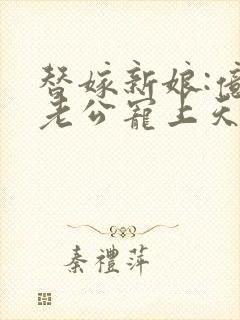 替嫁新娘:億
老公寵上天
秦禮萍